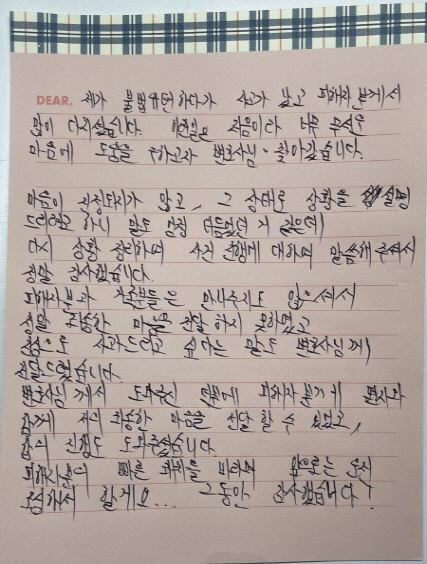 DEAR. 제가 불법유턴하다가 사고가 났고 피해자분께서
많이 다치셨습니다. 이런일은 처음이라 너무 무서운
마음에 도움을 구하고자 변호사님 찾아갔습니다.
마음이 진정되지가 않고, 그 상태로 상황을 설명
드리려고 하니 말도 엄청 더듬었던 거 같은데
다시 상황 정리하며 사건 진행에 대하여 말씀해주셔서
정말 감사했습니다.
피해자분과 가족분들은 만나주지도 않으셔서
정말 죄송한 마음을 전달하지 못하였고
진심으로 사과드리고 싶다는 말도 변호사님께
전달드렸습니다.
변호사님께서 도와주신 덕분에 피해자분께 편지와
함께 저의 죄송한 마음을 전달할 수 있었고,
합의 진행도 도와주셨습니다.
피해자분의 빠른 쾌유를 바라며 앞으로는 운전
조심해서 할게요... 그동안 감사했습니다!